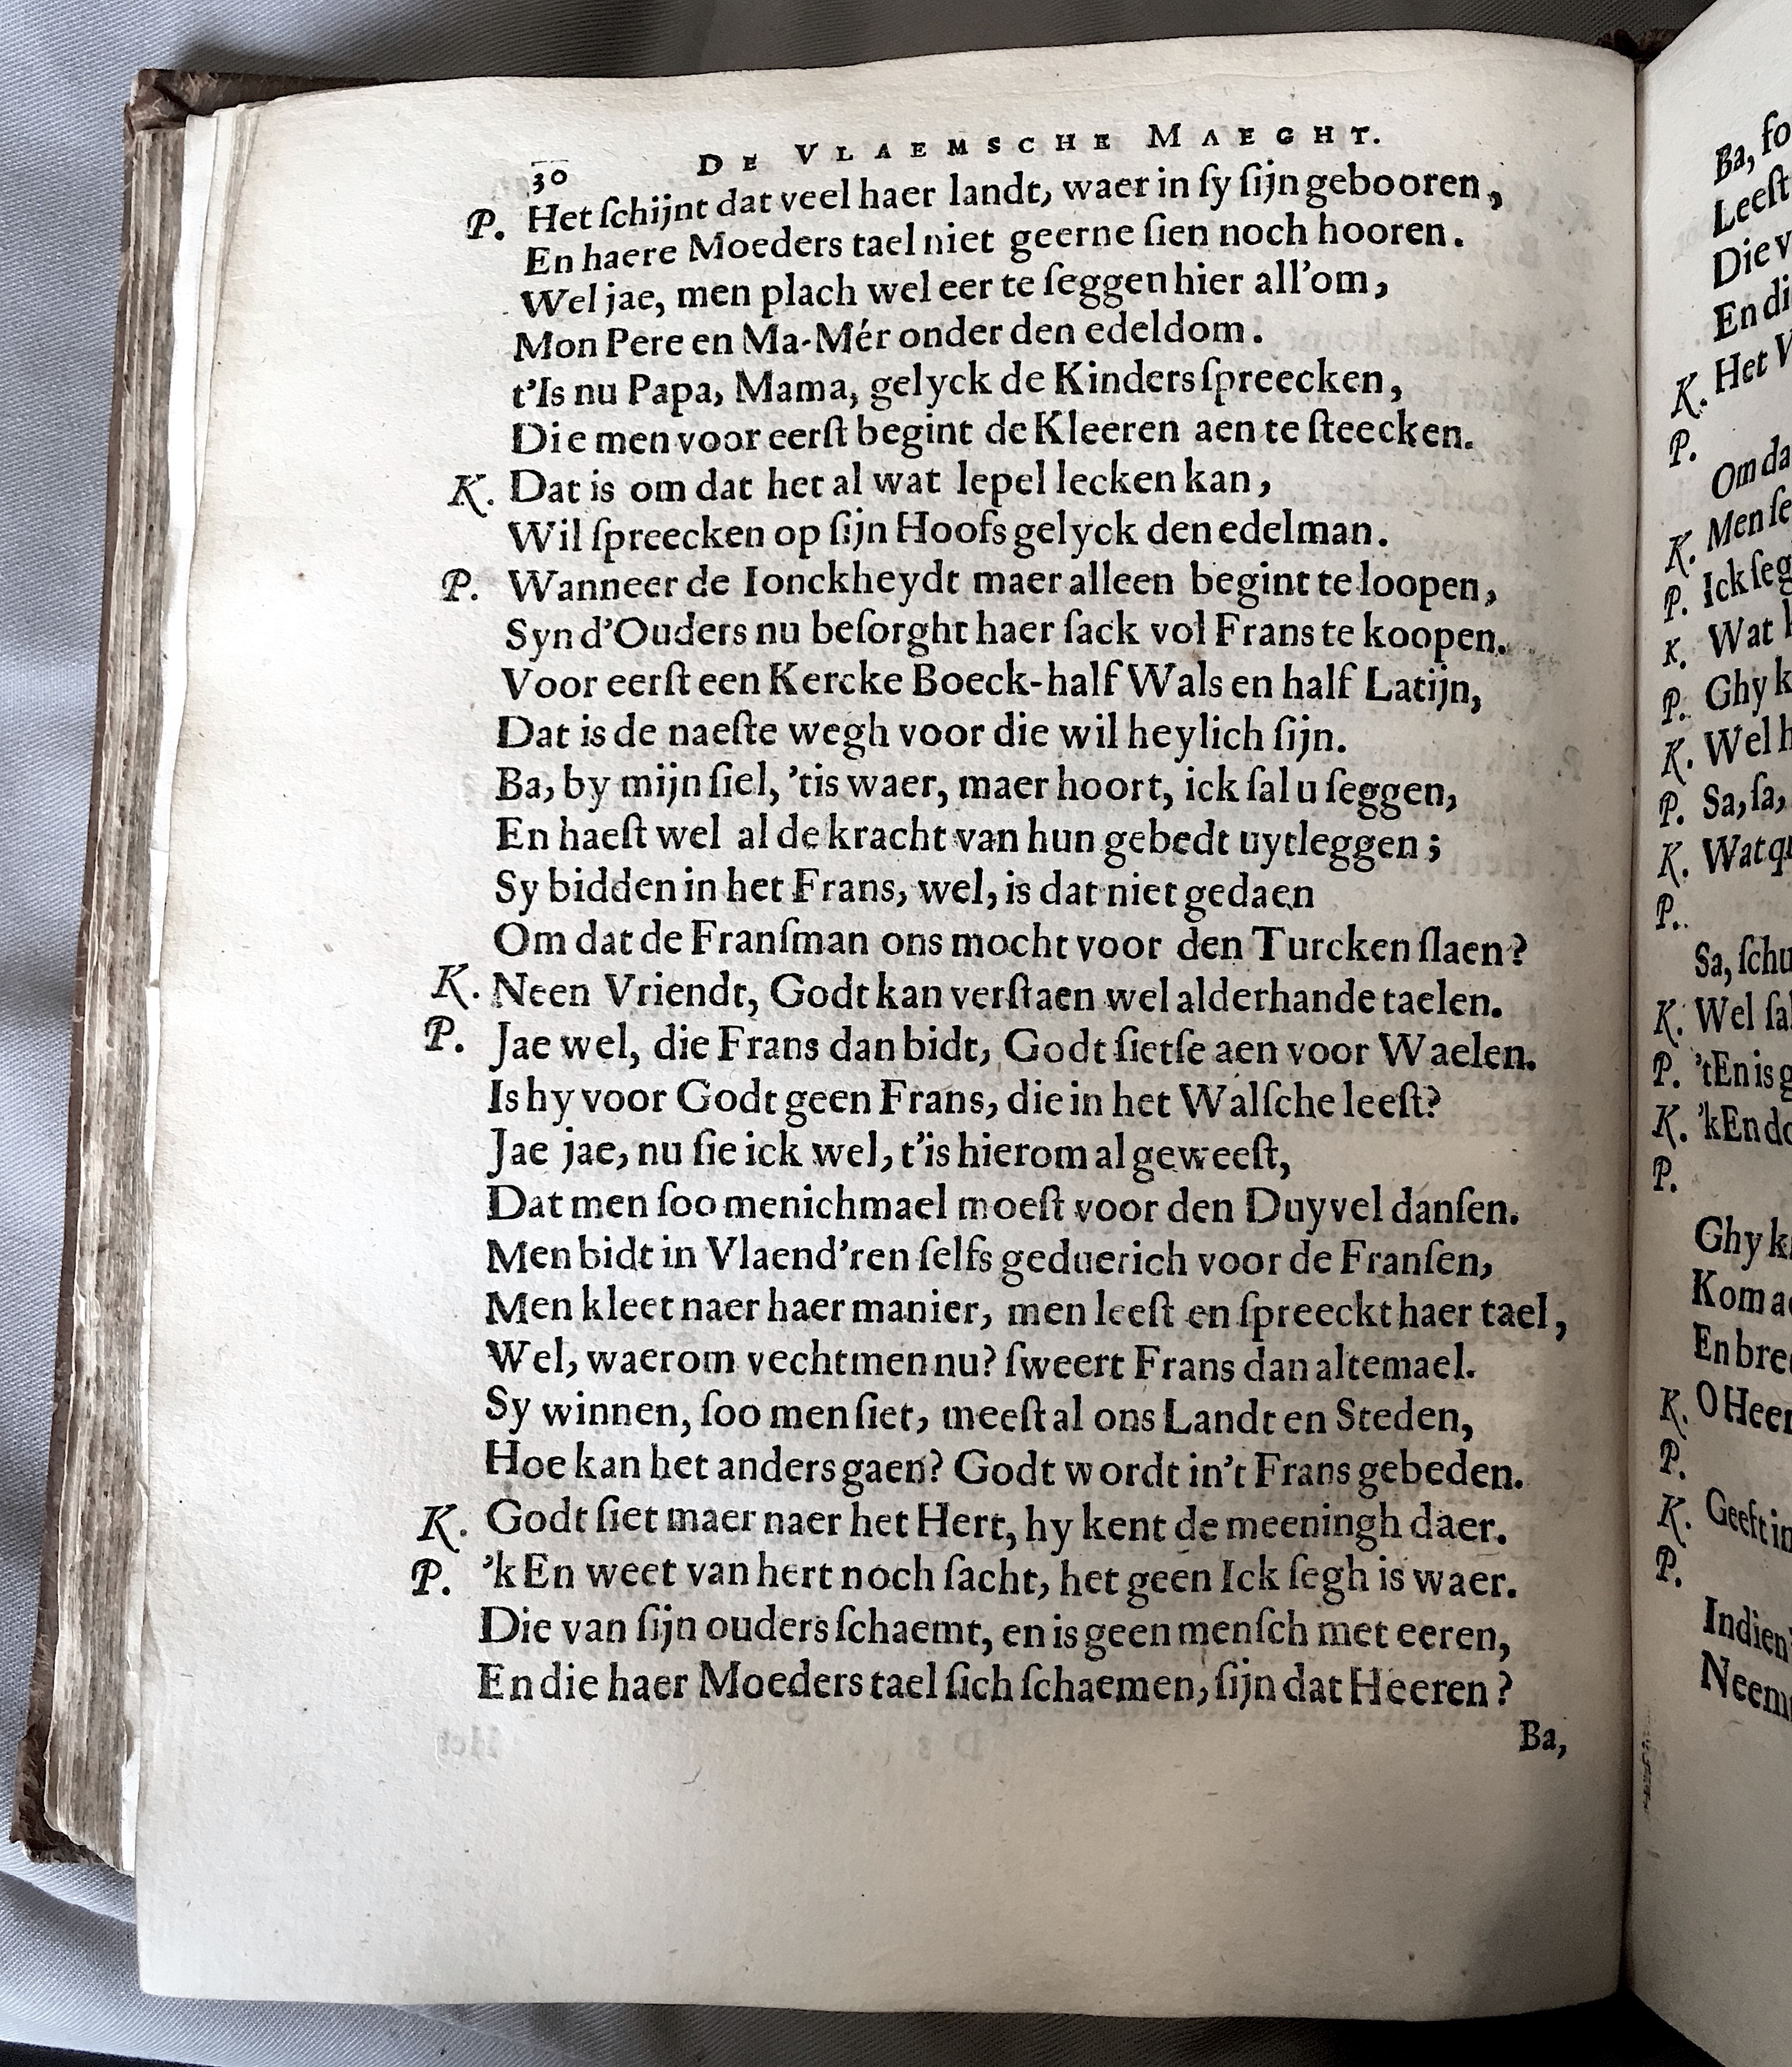 30 DE VLAEMSCHE MAEGHT.
P. Het ſchijnt dat veel haer landt, waer in ſy ſijn gebooren,
En haere Moeders tael niet geerne ſien noch hooren.
Wel jae, men plach wel eer te ſeggen hier all'om,
Mon Pere en Ma-Mér onder den edeldom.
t'Is nu Papa, Mama, gelyck de Kinders ſpreecken,
Die men voor eerſt begint de Kleeren aen te ſteecken.
K. Dat is om dat het al wat lepel lecken kan,
Wil ſpreecken op ſijn Hoofs gelyck den edelman.
P. Wanneer de Ionckheydt maer alleen begint te loopen,
Syn d'Ouders nu beſorght haer ſack vol Frans te koopen.
Voor eerſt een Kercke Boeck-half Wals en half Latijn,
Dat is de naeſte wegh voor die wil heylich ſijn.
Ba, by mijn ſiel, 'tis waer, maer hoort, ick ſal u ſeggen,
En haeſt wel al de kracht van hun gebedt uytleggen;
Sy bidden in het Frans, wel, is dat niet gedaen
Om dat de Franſman ons mocht voor den Turcken ſlaen?
K. Neen Vriendt, Godt kan verſtaen wel alderhande taelen.
P. Jae wel, die Frans dan bidt, Godt ſietſe aen voor Waelen.
Is hy voor Godt geen Frans, die in het Walſche leeſt?
Jae jae, nu ſie ick wel, t'is hierom al geweeſt,
Dat men ſoo menichmael moeſt voor den Duyvel danſen.
Men bidt in Vlaend'ren ſelfs geduerich voor de Franſen,
Men kleet naer haer manier, men leeſt en ſpreeckt haer tael,
Wel, waerom vechtmen nu? ſweert Frans dan altemael.
Sy winnen, ſoo men ſiet, meeſt al ons Landt en Steden,
Hoe kan het anders gaen? Godt wordt in't Frans gebeden.
K. Godt ſiet maer naer het Hert, hy kent de meeningh daer.
P. 'k En weet van hert noch ſacht, het geen Ick ſegh is waer.
Die van ſijn ouders ſchaemt, en is geen menſch met eeren,
En die haer Moeders tael ſich ſchaemen, ſijn dat Heeren?
Ba,
Ba,
Leeſt
Die
En
K. Het
P.
Om
K. Men
P. Ick
K. Wat
P. Ghy
K. Wel
P. Sa, ſa,
K. Wat
P.
Sa,
K. Wel
P. 'tEn is
K. 'kEn
P.
Ghy
Kom
En
K. O
P.
K. Geeft
P.